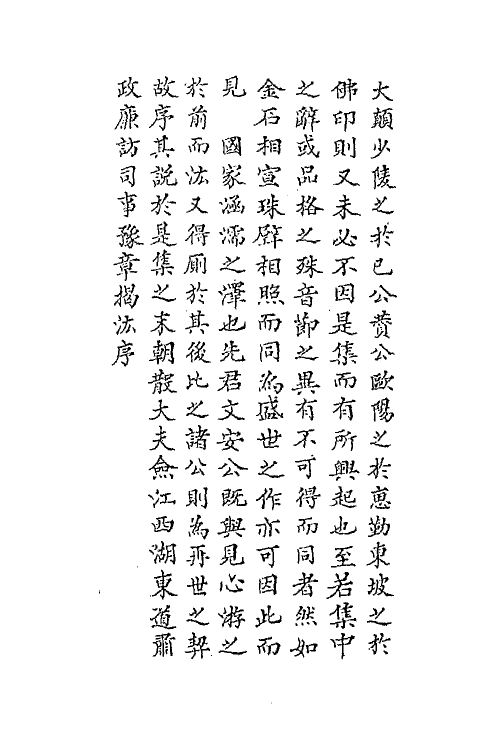 大顛少陵之於已公贊公歐陽之於惠勤東坡之於
佛印則又未必不因是集而有所興起也至若集中
之辭或品格之殊音節之異有不可得而同者然如
金石相宣珠璧相照而同為盛世之作亦可因此而
見　國家涵濡之澤也先君文安公既與見心游之
於前而汯又得厠於其後比之諸公則為再世之契
故序其說於是集之末朝散大夫僉江西湖東道肅
政廉訪司事豫章揭汯序